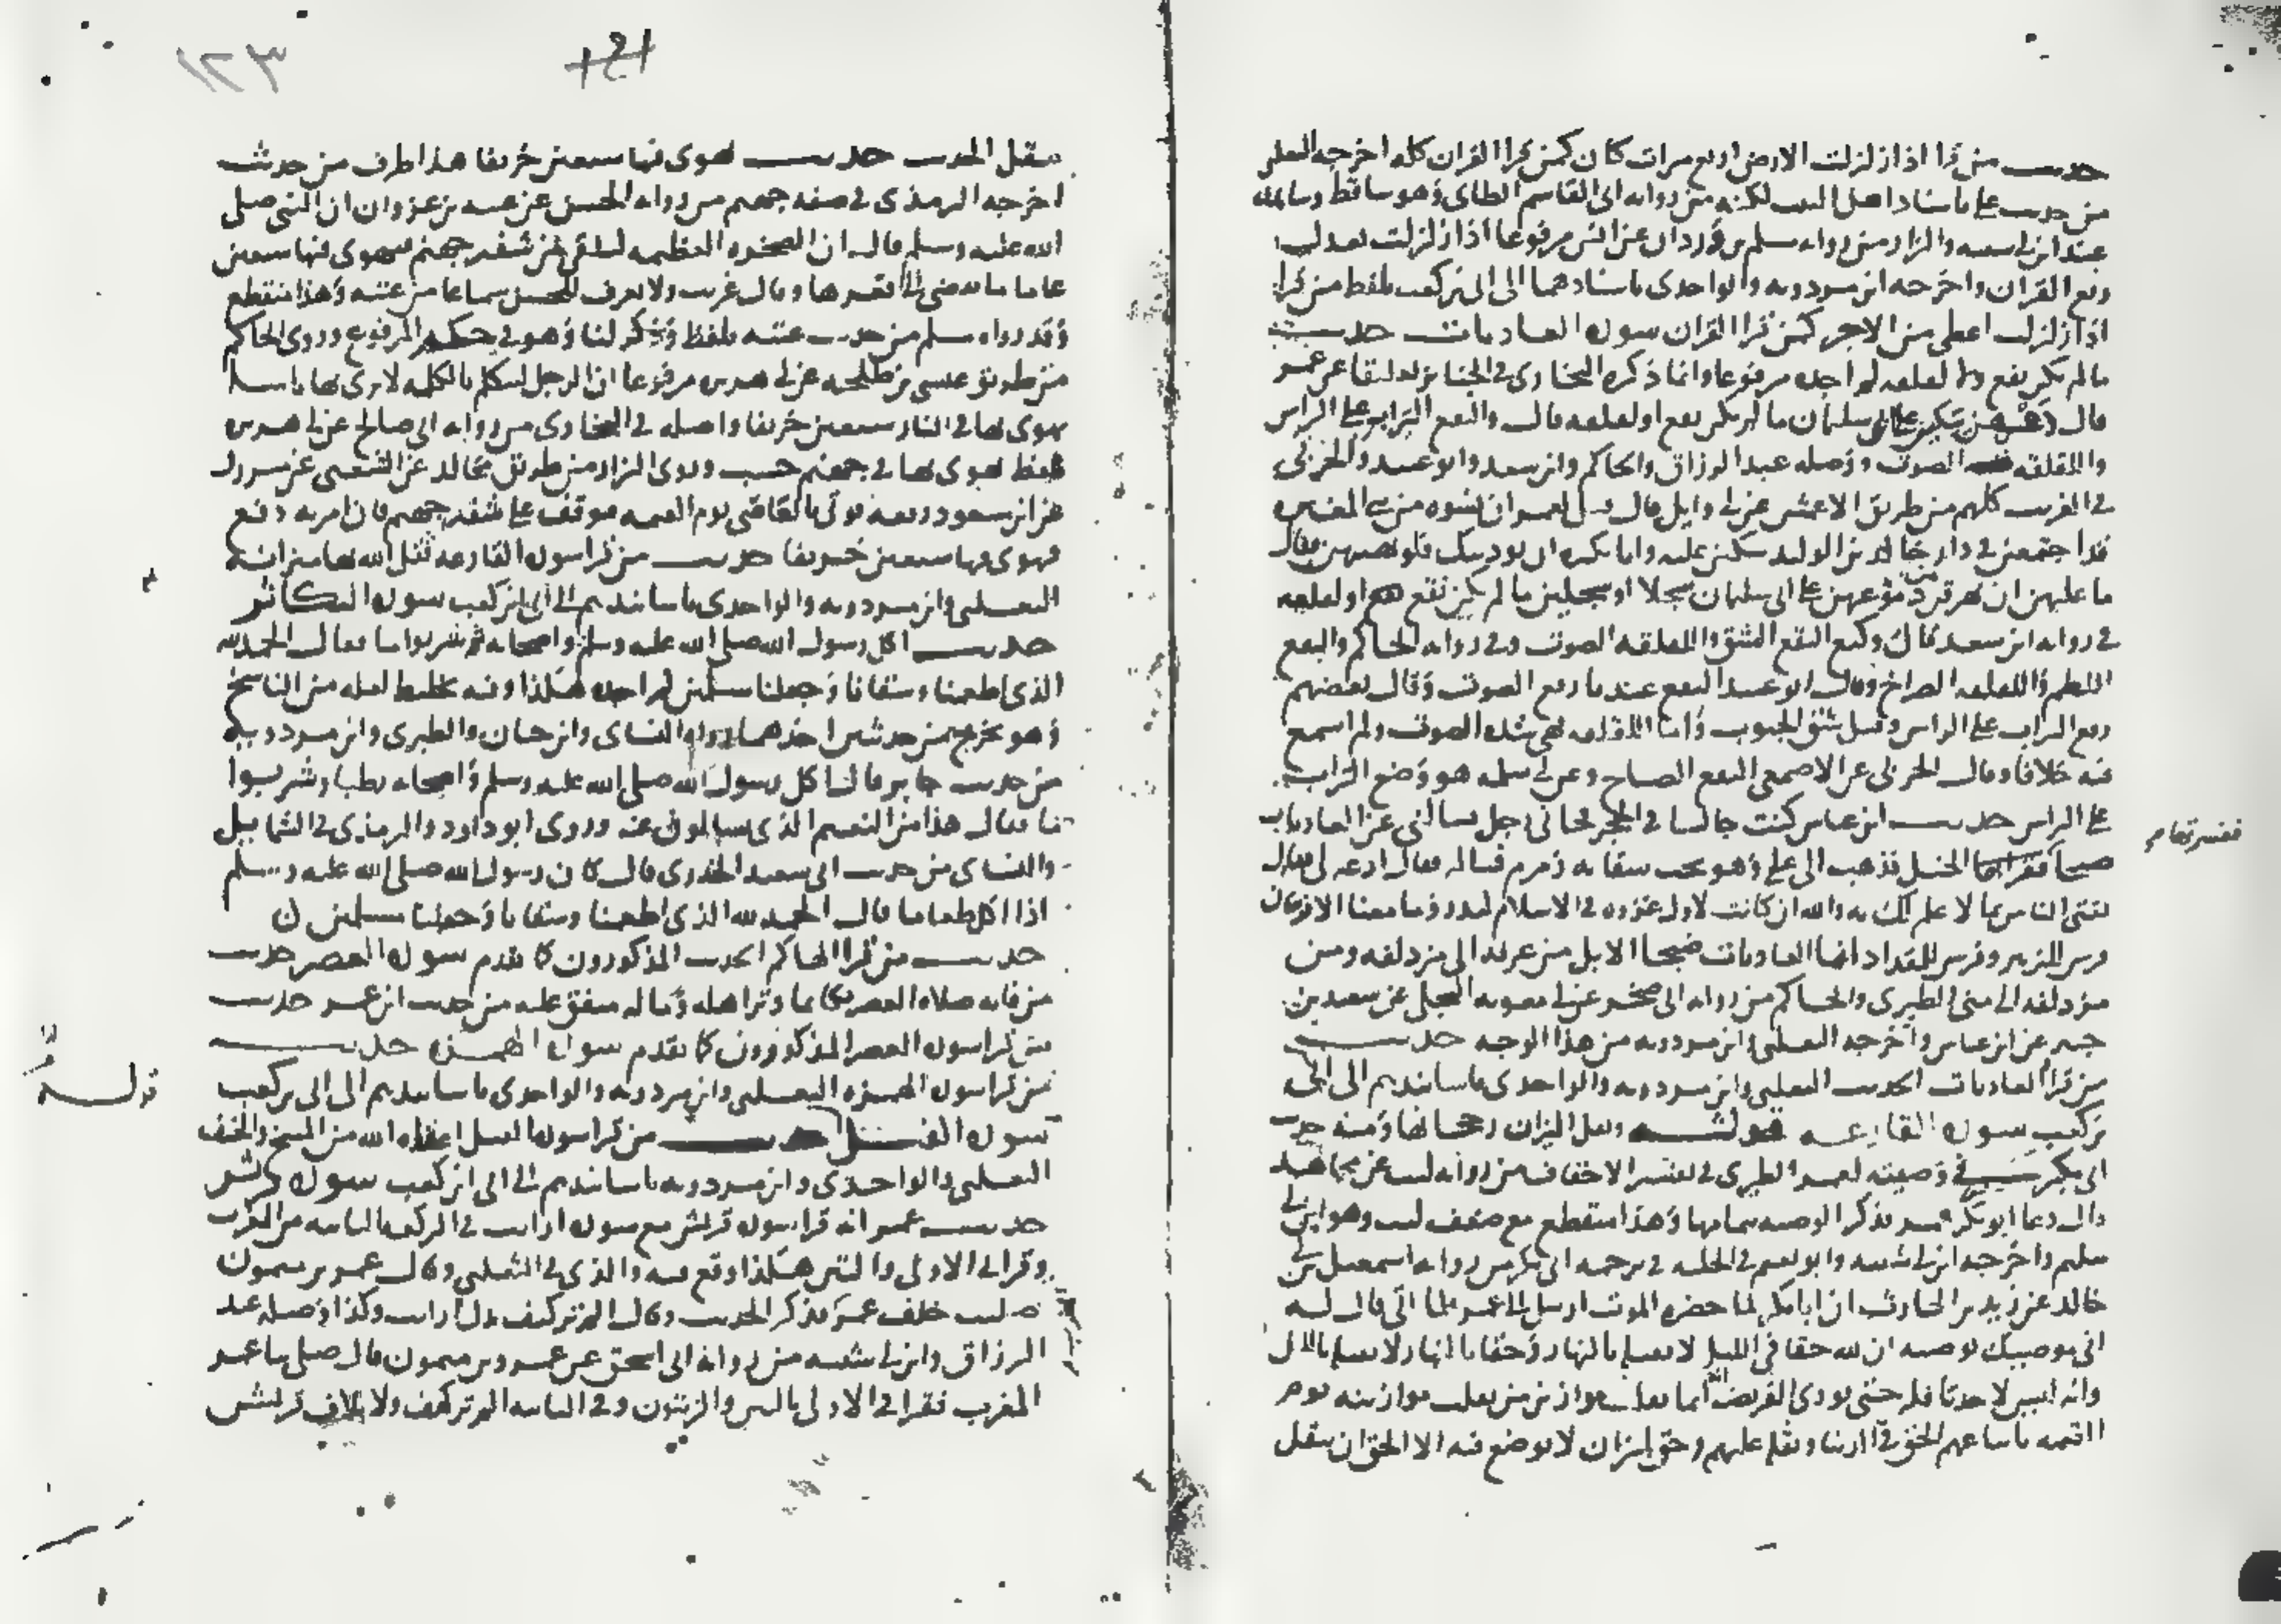 حديث من قرا اذا زلزلت الارض اربع مرات كان كمن قرا القران كله اخرجه الثعلبي
من حديث علي باسناد اهل البيت لكنه من روايه ابي القاسم الطاي وهو ساقط وشاهده
عند ابن ابي شيبه والبزار من روايه سلمه بن وردان عن انس مرفوعا اذا زلزلت تعدل
ربع القران واخرجه ابن مردويه والواحدي باسنادهما الى ابي بن كعب بلفظ من قرا
اذا زلزلت اعطي من الاجر كمن قرا القران سورة العاديات حديث
ما لم يكن نقع ولا لقلقه لم اجده مرفوعا وانما ذكره البخاري في الجنايز تعليقا عن عمر
قال دعهن يبكين على ابي سليمان ما لم يكن نقع او لقلقه قال والنقع التراب على الراس
واللقلقه الصوت ووصله عبد الرزاق والحاكم وابن سعد وابو عبيد والحربي
في الغريب كلهم من طريق الاعمش عن ابي وايل قال قيل لعمر ان نسوه من بني المغيره
قد اجتمعن في دار خالد بن الوليد يبكين عليه وانا نكره ان يوذينك فلو نهيتهن فقال
ما عليهن ان يهرقن من دموعهن على ابي سليمان سجلا او سجلين ما لم يكن نقع او لقلقه
في روايه ابن سعد قال وكيع النقع الشق واللقلقه الصوت وفي روايه الحاكم والنقع
اللطم واللقلقه الصراخ وقال ابو عبيد النقع عندنا رفع الصوت وقال بعضهم
رفع التراب على الراس وقيل شق الجيوب واما اللقلقه فهي شدة الصوت ولم اسمع
فيه خلافا وقال الحربي عن الاصمعي النقع الصياح وعن ابي سلمه هو وضع التراب
على الراس حديث ابن عباس كنت جالسا في الحجر فجاني رجل فسالني عن العاديات
ضبحا ففسرتها الخيل فذهب الى علي وهو تحت سقايه زمزم فساله فقال ادعه لي فقال
تفتي الناس بما لا علم لك به والله ان كانت لاول غزوه في الاسلام لبدر وما معنا الا فرسان
فرس للزبير وفرس للمقداد انما العاديات ضبحا الابل من عرفه الى مزدلفه ومن
مزدلفه الى منى الطبري والحاكم من روايه ابي صخر عن ابي معويه البجلي عن سعيد بن
جبير عن ابن عباس واخرجه الثعلبي وابن مردويه من هذا الوجه حديث
من قرا العاديات الحديث الثعلبي وابن مردويه والواحدي باسانيدهم الى ابي
بن كعب سورة القارعه قوله وثقل الميزان رجحانها ومنه حديث
ابي بكر في وصيته لعمر الطبري في تفسير الاحقاف من روايه ليث عن مجاهد
قال دعا ابو بكر عمر فذكر الوصيه بتمامها وهذا منقطع مع ضعف ليث وهو ابن ابي
سليم واخرجه ابن ابي شيبه وابو نعيم في الحليه في ترجمه ابي بكر من روايه اسمعيل بن ابي
خالد عن زبيد بن الحارث ان ابا بكر لما حضره الموت ارسل الى عمر فلما اتى قال له
اني موصيك بوصيه ان لله حقا في الليل لا يقبله بالنهار وحقا بالنهار لا يقبله بالليل
وانه ليس لاحد نافله حتى يودي الفريضه انما ثقلت موازين من ثقلت موازينه يوم
القيمه باتباعهم الحق في الدنيا وثقله عليهم وحق لميزان لا يوضع فيه الا الحق ان يثقل
ففسرتها
١٢٣
يثقل الحديث حديث يهوي فيها سبعين خريفا هذا طرف من حديث
اخرجه الترمذي في صفه جهنم من روايه الحسن عن عتبه بن غزوان ان النبي صلى
الله عليه وسلم قال ان الصخره العظيمه لتلقى من شفير جهنم فتهوي فيها سبعين
عاما ما تفضي الى قعرها وقال غريب ولا يعرف للحسن سماعا من عتبه وهذا منقطع
وقد رواه مسلم من حديث عتبه بلفظ وذكر لنا وهو في حكم المرفوع وروى الحاكم
من طريق عيسى بن طلحه عن ابي هريره مرفوعا ان الرجل ليتكلم بالكلمه لا يرى بها باسا
يهوي بها في النار سبعين خريفا واصله في البخاري من روايه ابي صالح عن ابي هريره
بلفظ يهوي بها في جهنم حسب وروى البزار من طريق مجالد عن الشعبي عن مسروق
عن ابن مسعود رفعه يوتى بالقاضي يوم القيمه فيوقف على شفير جهنم فان امر به دفع
فهوى فيها سبعين خريفا حديث من قرا سورة القارعه ثقل الله بها ميزانه
الثعلبي وابن مردويه والواحدي باسانيدهم الى ابي بن كعب سورة التكاثر
حديث اكل رسول الله صلى الله عليه وسلم واصحابه ثم شربوا ما فقال الحمد لله
الذي اطعمنا وسقانا وجعلنا مسلمين لم اجده هكذا وفيه تخليط لعله من الناسخ
وهو مخرج من حديثين احدهما رواه النساي وابن حبان والطبري وابن مردويه
من حديث جابر قال اكل رسول الله صلى الله عليه وسلم واصحابه رطبا وشربوا
ما فقال هذا من النعيم الذي تسالون عنه وروى ابو داود والترمذي في الشمايل
والنساي من حديث ابي سعيد الخدري قال كان رسول الله صلى الله عليه وسلم
اذا اكل طعاما قال الحمد لله الذي اطعمنا وسقانا وجعلنا مسلمين
حديث من قرا الهاكم الحديث المذكورون كما تقدم سورة العصر حديث
من فاته صلاه العصر فكانما وتر اهله وماله متفق عليه من حديث ابن عمر حديث
من قرا سورة العصر المذكورون كما تقدم سورة الهمزه حديث
من قرا سورة الهمزه الثعلبي وابن مردويه والواحدي باسانيدهم الى ابي بن كعب
سورة الفيل حديث من قرا سورة الفيل اعفاه الله من المسخ والخسف
الثعلبي والواحدي وابن مردويه باسانيدهم الى ابي بن كعب سورة قريش
حديث عمر انه قرا سورة قريش مع سورة ارايت في الركعه الثانيه من المغرب
وقرا في الاولى والتين هكذا وقع فيه والذي في الثعلبي وقال عمرو بن ميمون
صليت خلف عمر فذكر الحديث وقال الم تر كيف بدل ارايت وكذا وصله عبد
الرزاق وابن ابي شيبه من روايه ابي اسحق عن عمرو بن ميمون قال صلى بنا عمر
المغرب فقرا في الاولى بالتين والزيتون وفي الثانيه الم تر كيف ولايلاف قريش